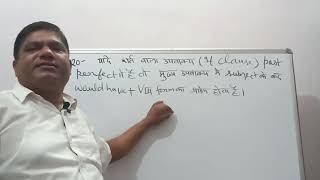 20- यदि शर्त वाला उपवाक्य (If clause) past
perfect में है तो मुख्य उपवाक्य में subject के बाद
would have + VIII form का प्रयोग होता है।